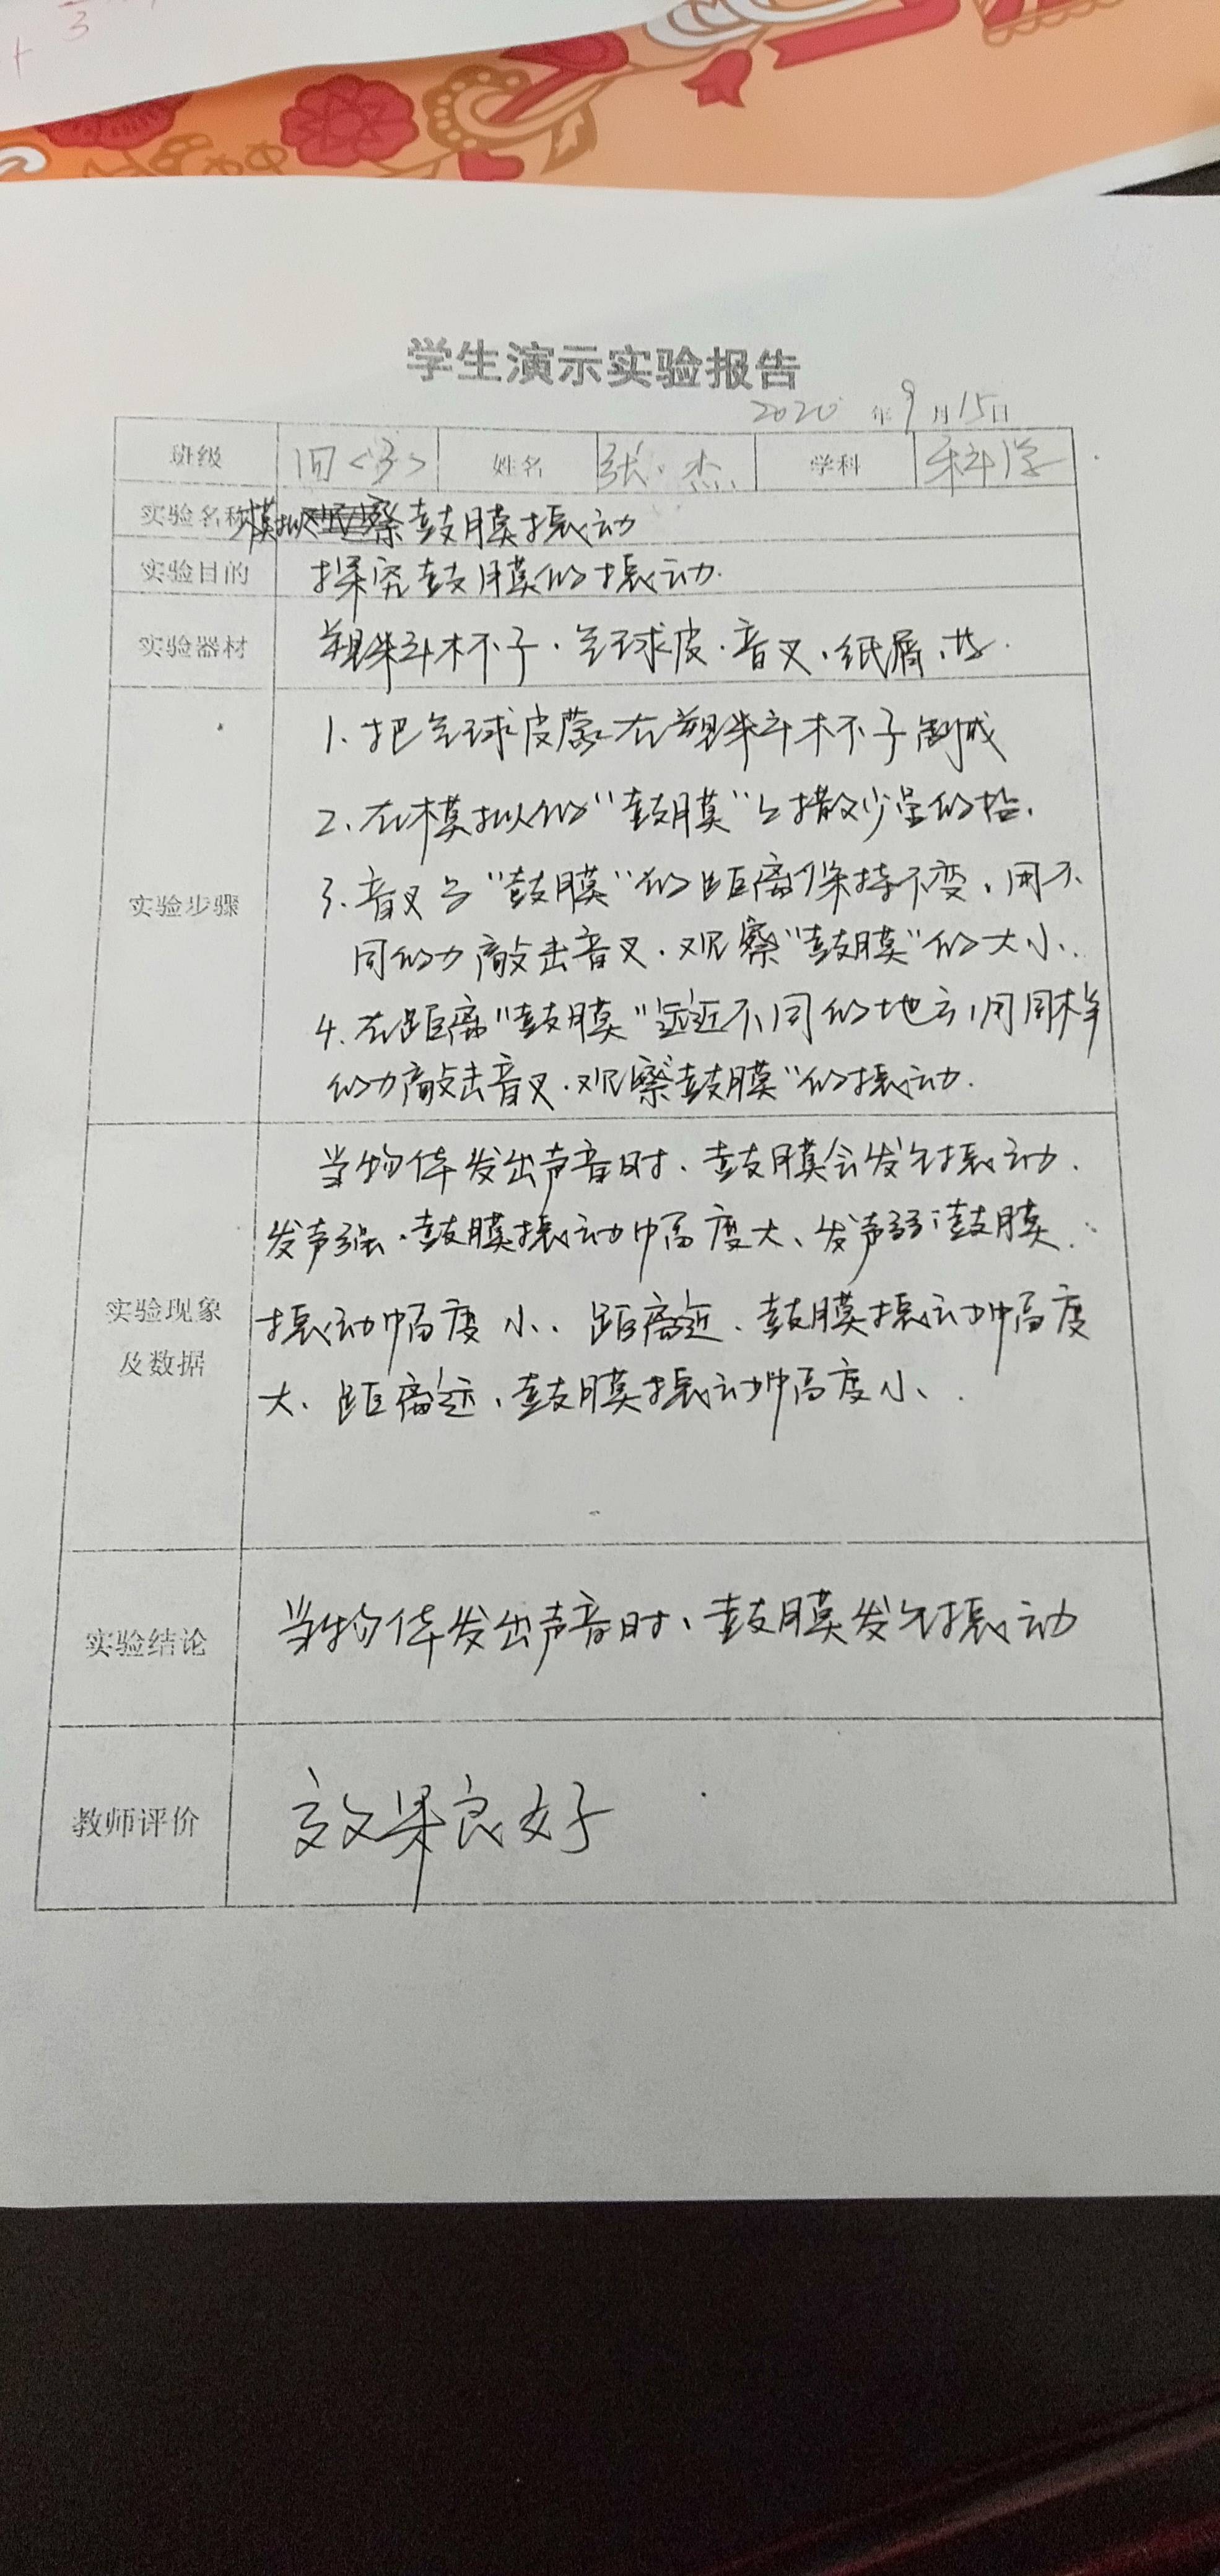 学生演示实验报告
2020 年 9 月 15 日
班级 四<3> 姓名 张杰 学科 科学
实验名称 模拟观察鼓膜振动
实验目的 探究鼓膜的振动.
实验器材 塑料杯子.气球皮.音叉、纸屑、
实验步骤
1、把气球皮蒙在塑料杯子制成
2、在模拟的“鼓膜”上撒少量的
3、音叉与“鼓膜”的距离保持不变、用不
同的力敲击音叉.观察“鼓膜”的大小、
4、在距离“鼓膜”远近不同的地方,用同样
的力敲击音叉.观察鼓膜”的振动.
实验现象
及数据
当物体发出声音时、鼓膜会发生振动.
发声强.鼓膜振动幅度大、发声弱鼓膜
振动幅度小、距离近、鼓膜振动幅度
大、距离远、鼓膜振动幅度小、
实验结论 当物体发出声音时、鼓膜发生振动
教师评价 效果良好